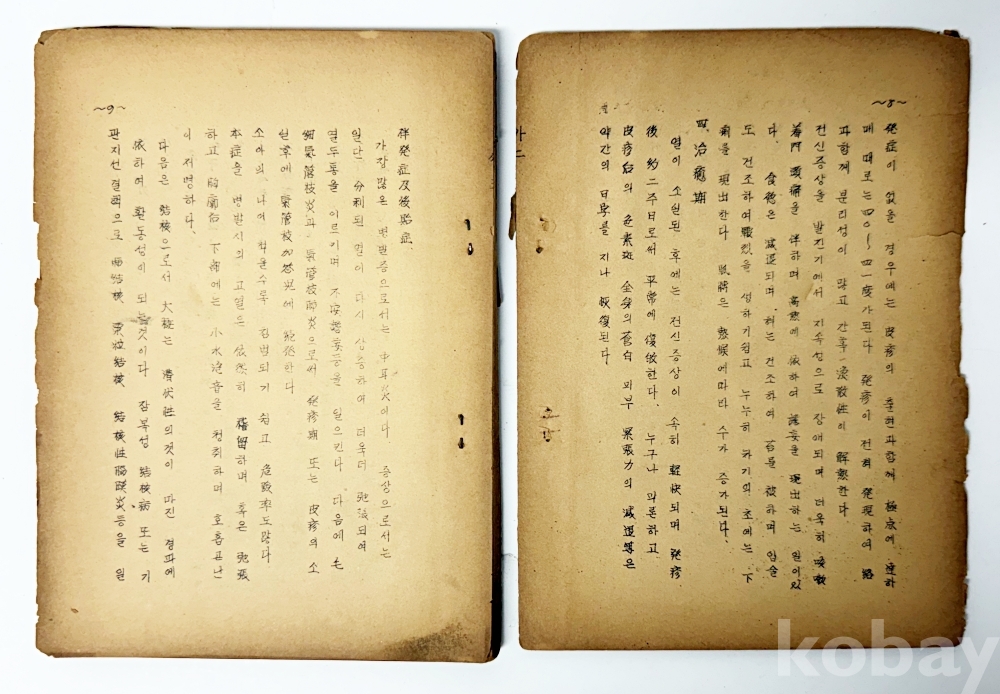 ~8~
発症이 없을 경우에는 皮疹의 출현과함께 極点에 達하
메 때로는 四〇~四一度가된다 発疹이 전희 発現하여
과함께 분리성이 많고 간혹 渙散性의 解熱한다
전신증상을 발진기에서 지속성으로 장애되며 더욱히 咳嗽
著明 頭痛을 伴하며 高熱에 依하여 譫妄을 現出하는 일이있
다. 食慾은 減退되며 혀는 건조하여 苔를 被하며 입술
도 건조하여 皸裂을 생하기쉽고 누누히 하기의 초에는 下
痢를 現出한다 脈搏은 熱候에따라 수가 증가된다.
四. 治癒期
열이 소실된 후에는 전신증상이 속히 軽快되며 発疹
後 約二주日로써 平常에 復하한다. 누구나 의론하고
皮疹后의 色素斑 全身의 蒼白 피부 緊張力의 減退等은
약간의 日字를 지나 恢復된다.
~9~
伴発症及後貽症.
가장많은 병발증으로서는 中耳炎이다. 증상으로서는
일단 分利된 열이 다시 상승하여 더욱더 되여
열두통을 이르키며 不安 等을 일으킨다. 다음에 는
細氣管枝炎과 氣管枝肺炎으로써 発疹期 또는 皮疹의 소
실후에 氣管枝カ다루에 続発한다
소아의 나이 적을수록 감별되기 쉽고 危険率도많다
本症을 병발시의 고열은 依然히 稽留하며 혹은 弛張
하고 胸廓 下部에는 小水泡音을 청취하며 호흡곤난
이 저명하다.
다음은 結核으로서 大槪는 潜伏性의것이 마진 경과에
依하여 활동성이 되는것이다 잠복성 結核病 또는 기
관지선 결핵으로 肺結核 粟粒結核 結核性腦膜炎등을 일
kobay